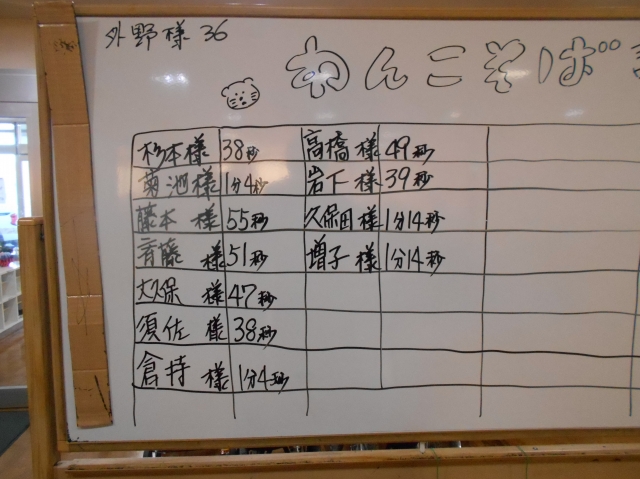 外野様 36
わんこそば
杉本様 38秒 高橋様 49秒
菊池様 1分4秒 岩下様 39秒
藤本様 55秒 久保田様 1分14秒
斉藤様 51秒 増子様 1分14秒
大久保様 47秒
須佐様 38秒
倉持様 1分4秒